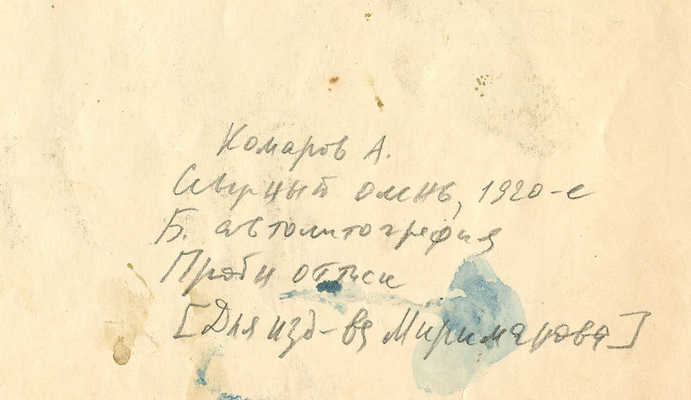 Комаров А.
Северный олень, 1920-е
Б. автолитография
Пробн оттиск
[Для изд-ва Миримарова]